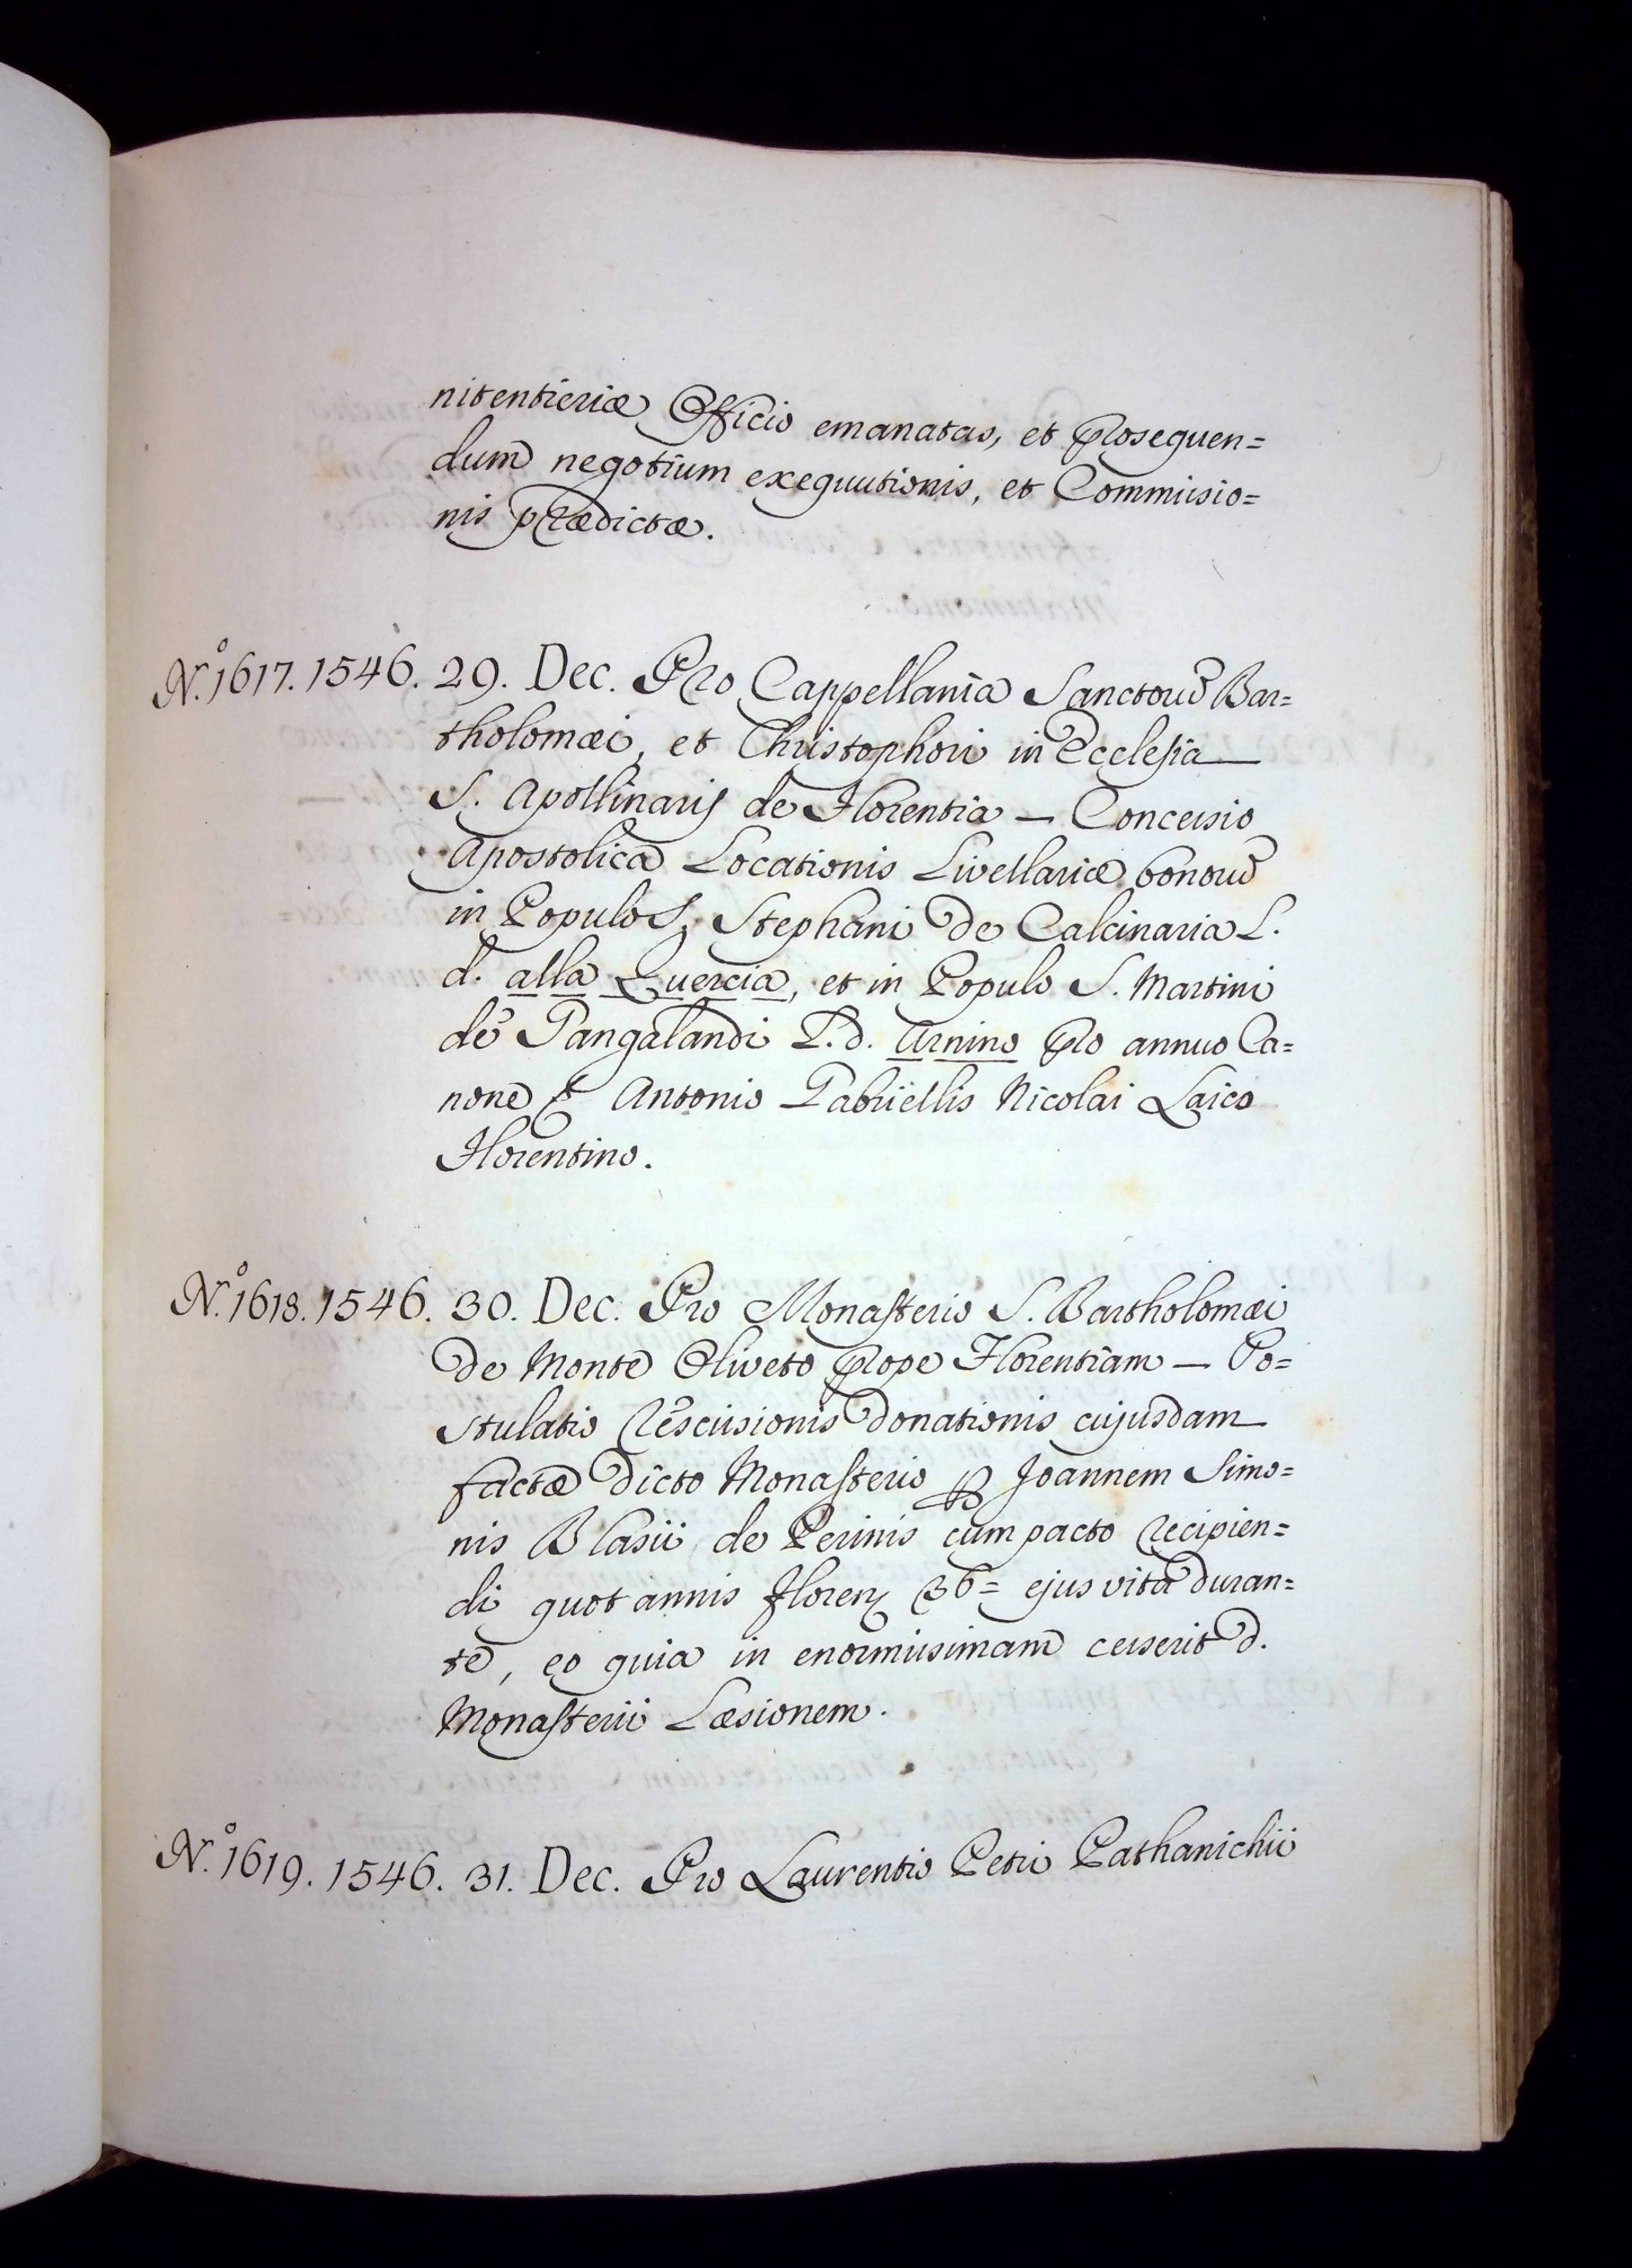 nitentieriæ Officio emanatas, et prosequen=
dum negotium exequutionis, et Commissio=
nis prædictæ.
N.º 1617. 1546. 29. Dec. Pro Cappellania Sanctorũ Bar=
tholomæi, et Christophori in Ecclesia
S. Apollinaris de Florentia — Concessio
Apostolica Locationis Livellariæ bonorũ
in Populo S. Stephani de Calcinaria L.
d. alla Quercia, et in Populo S. Martini
de Gangalandi L. d. Arnino pro annuo Ca=
none & Antonio Gabriellis Nicolai Laico
Florentino.
N.º 1618. 1546. 30. Dec. Pro Monasterio S. Bartholomæi
de Monte Oliveto prope Florentiam — Po=
stulatio rescissionis donationis cujusdam
factæ dicto Monasterio per Joannem Simo=
nis Blasii de Perinis cum pacto recipien=
di quotannis floren 36= ejus vita duran=
te, eo quia in enormissimam cesserit d.
Monasterii Læsionem.
N.º 1619. 1546. 31. Dec. Pro Laurentio Petri Pathanichii